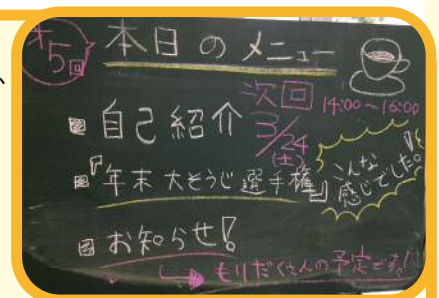 第5回
本日のメニュー
自己紹介
次回 14:00～16:00
3/24
(土)
『年末大そうじ選手権』
こんな
感じでした。
お知らせ!
もりだくさんの予定です!